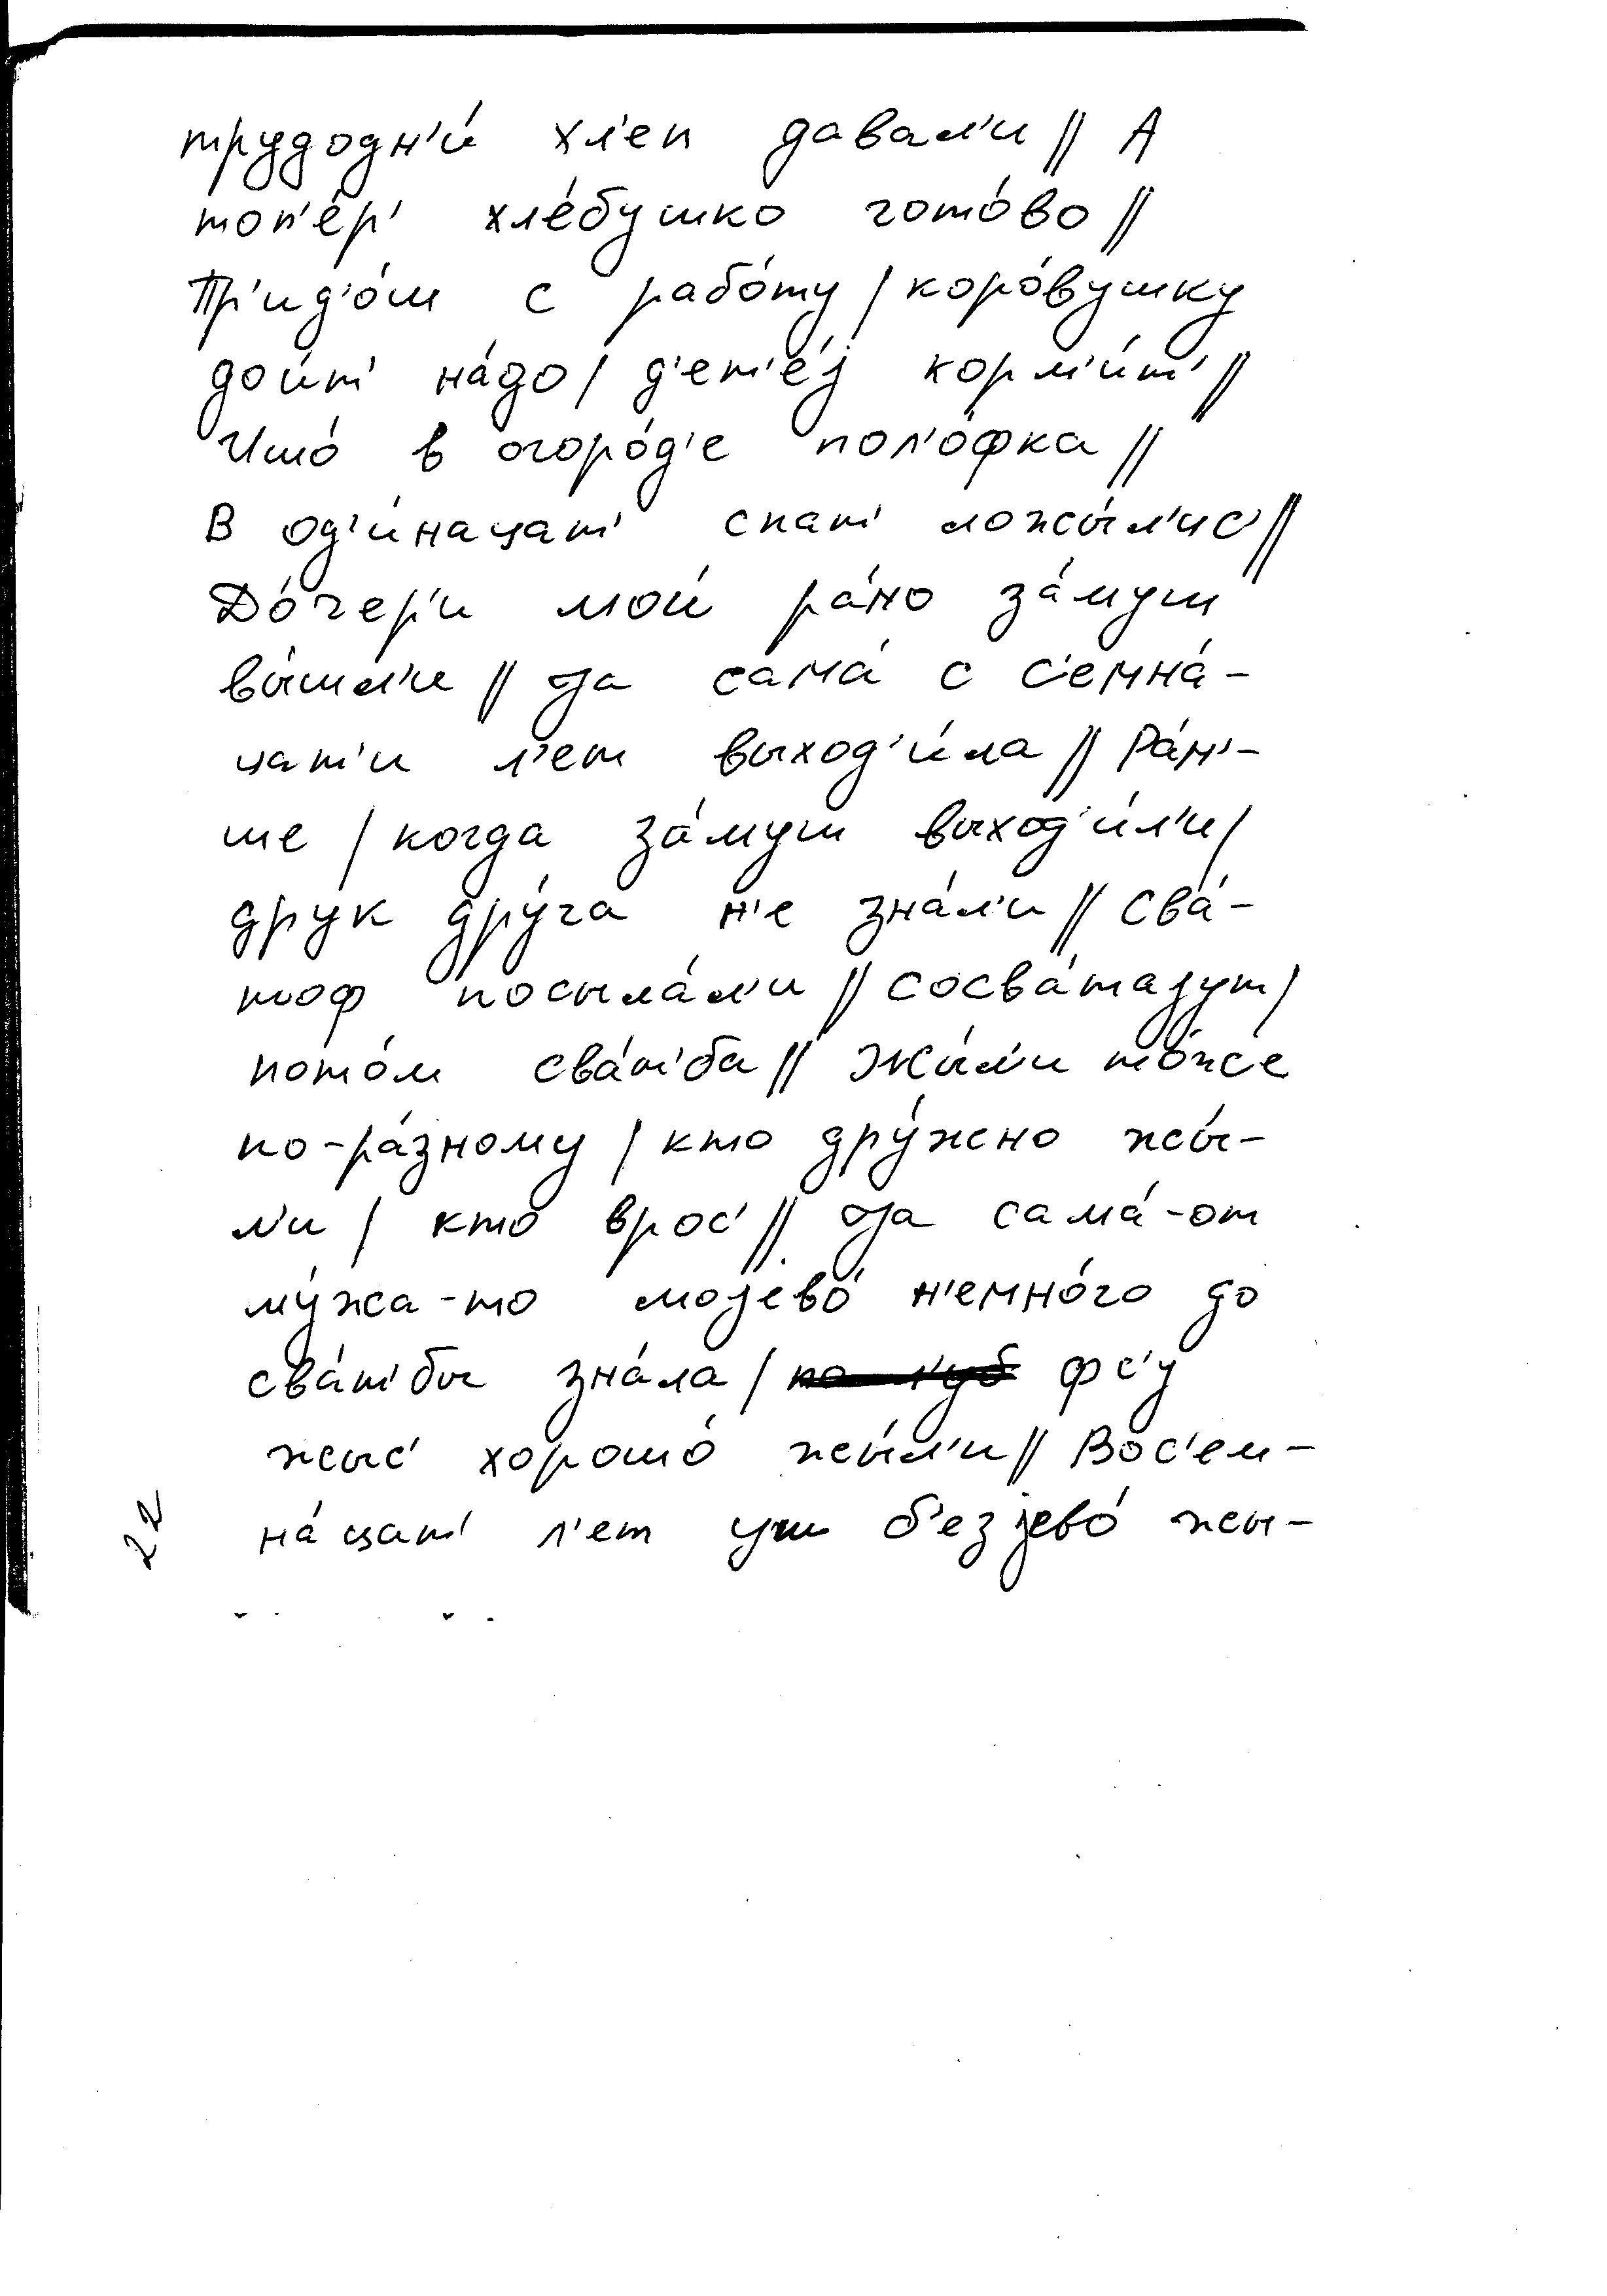 трудодн'и́ хл'еп давал'и // А
топ'е́р' хле́бушко гото́во //
Пр'ид'о́м с рабо́ту / коро́вушку
дои́т' на́до / д'ет'е́j корм'и́т' //
Што́ в огоро́д'е пол'о́фка //
В од'и́нацат' спат' ложы́л'ис' //
До́чер'и мои́ ра́но за́муш
вы́шл'и // ja сама́ с с'емна́-
цат'и л'ет выход'и́ла // Ра́н'-
ше / когда за́муш выход'и́л'и /
друк дру́га н'е зна́л'и // Сва́-
тоф посыла́л'и // Сосва́таjут /
пото́м сва́т'ба // Жы́л'и то́же
по-ра́зному / кто дру́жно жы́-
л'и / кто врос' // ja сама́-от
му́жа-то моjево́ н'емно́го до
сва́т'бы зна́ла / по л'уб фс'у
жыс' хорошо́ жы́л'и // Вос'ем-
на́цат' л'ет уш б'езjево́ жы-
22